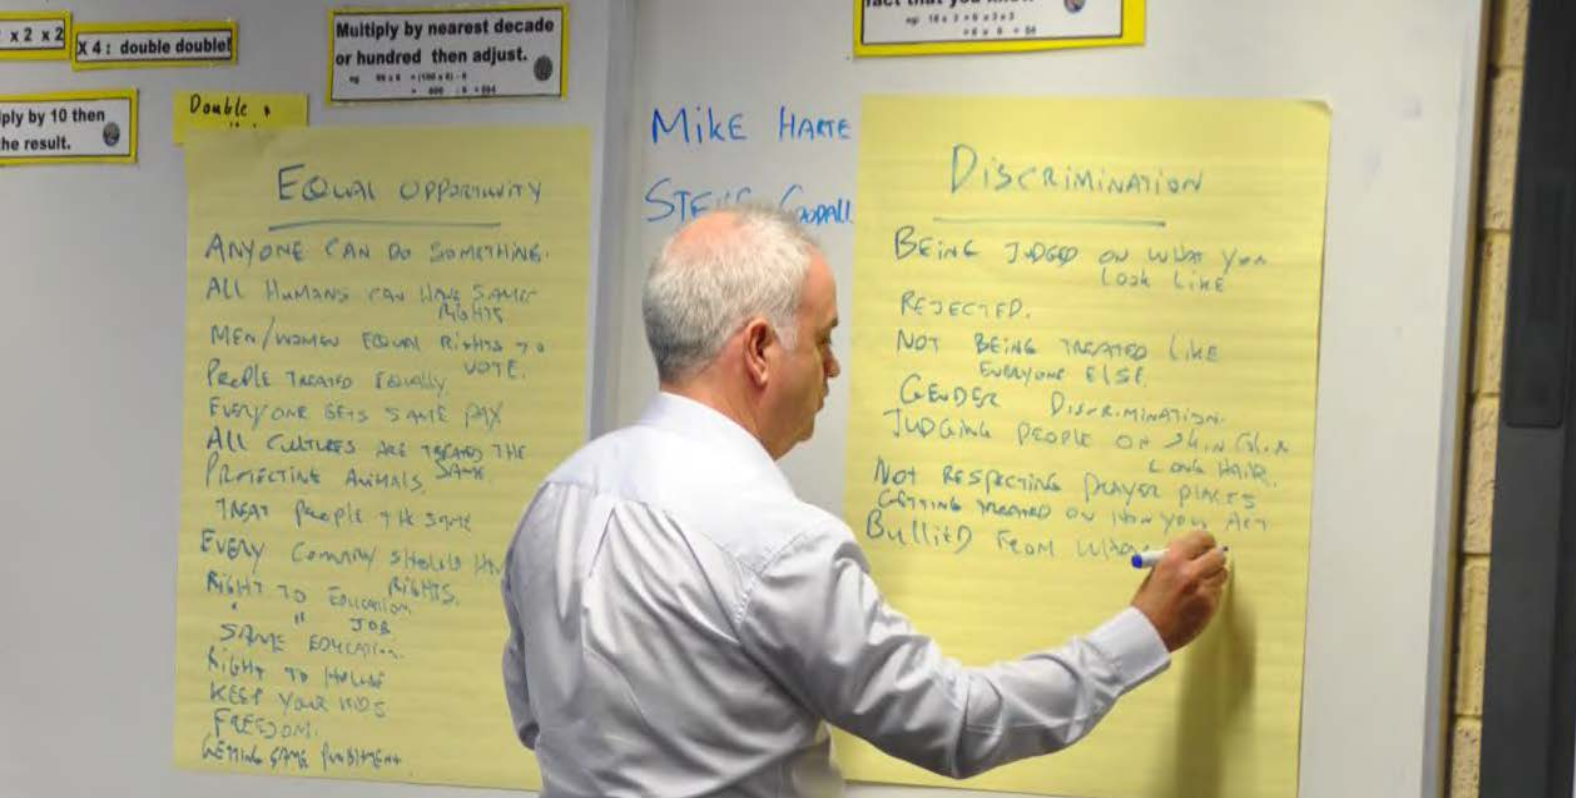 x 2 x 2
X 4 : double double!
Multiply by nearest decade
or hundred then adjust.
fact that you know
ply by 10 then
he result.
Double
MikE HARTE
GOODALL
EQUAL OPPORTUNITY
ANYONE CAN DO SOMETHING.
ALL HUMANS CAN HAVE SAME
RIGHTS
MEN/WOMEN EQUAL RIGHTS TO
VOTE.
PEOPLE TREATED EQUALLY
EVERYONE GETS SAME PAY
ALL CULTURES ARE TREATED THE
SAME
PROTECTING ANIMALS
TREAT PEOPLE THE SAME
EVERY COUNTRY SHOULD
RIGHTS.
RIGHT TO EDUCATION
" " JOB
SAME EDUCATION.
RIGHT TO HOUSE
KEEP YOUR KIDS
FREEDOM.
GETTING SAME
DISCRIMINATION
BEING JUDGED ON WHAT YOU
LOOK LIKE
REJECTED.
NOT BEING TREATED LIKE
EVERYONE ELSE.
GENDER DISCRIMINATION.
JUDGING PEOPLE ON SKIN COLOR
LONG HAIR.
NOT RESPECTING PRAYER PLACES
GETTING TREATED ON HOW YOU ACT
BulliED FROM